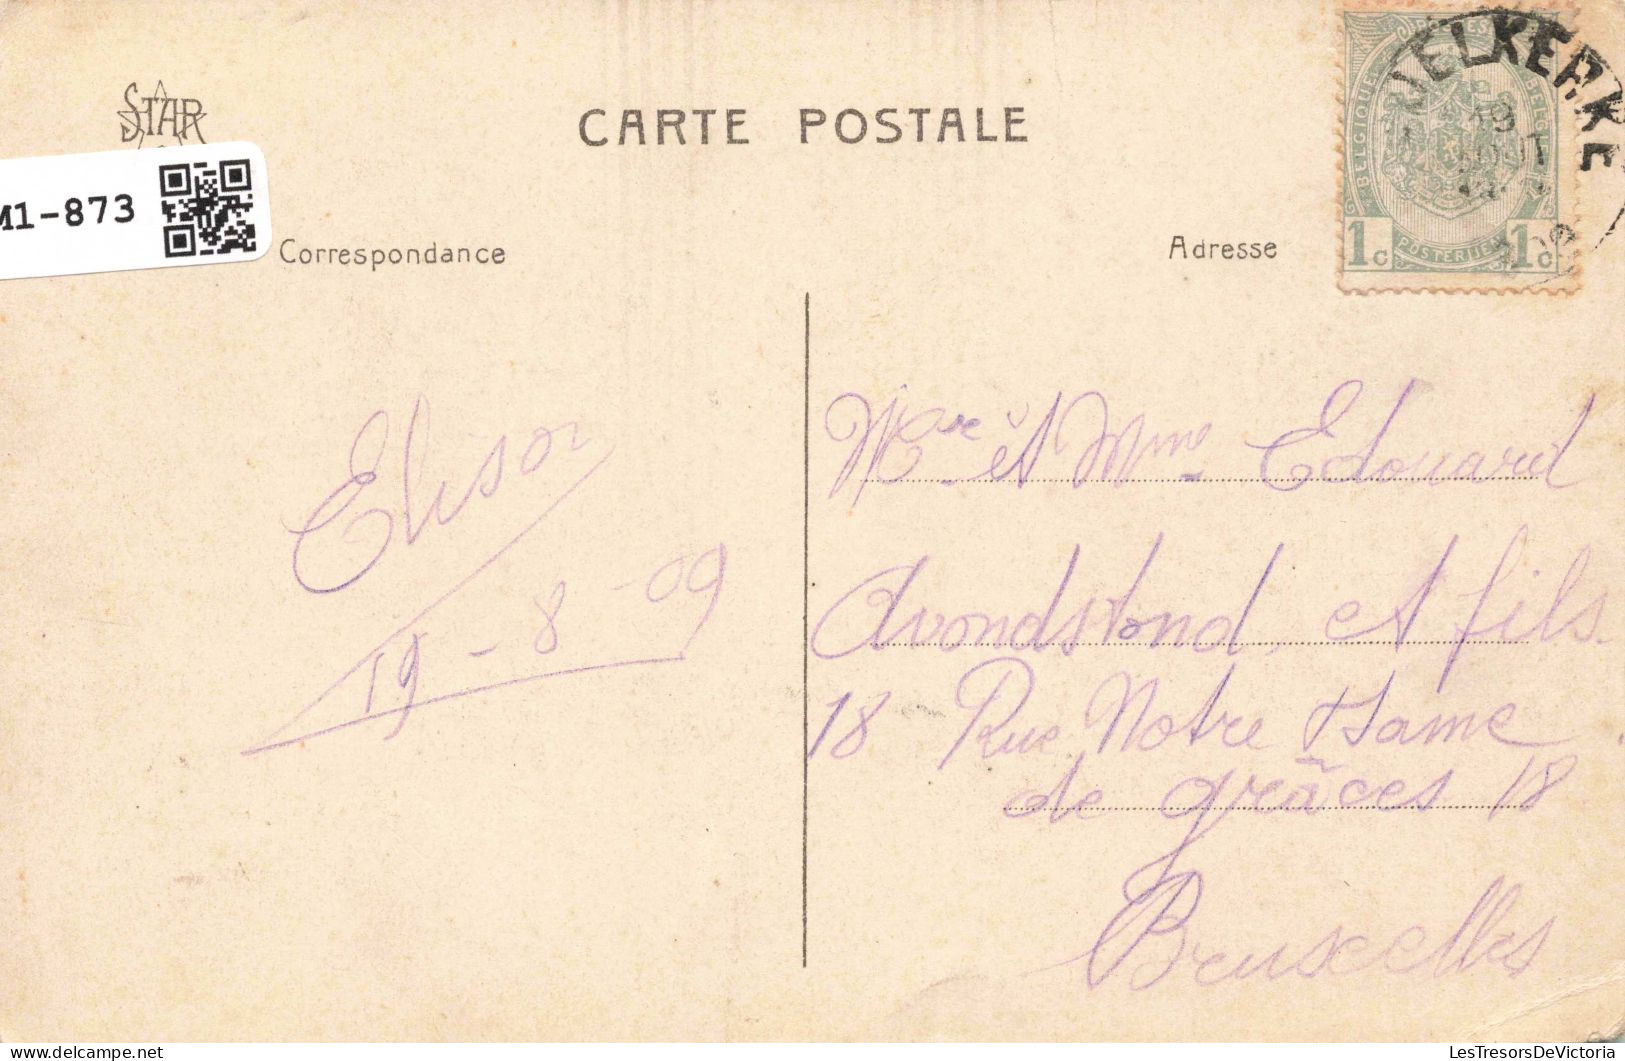 STAR
CARTE POSTALE
M1-873
Correspondance
Adresse
BELGIQUE
BELGIË
1c POSTERIJEN 1c
ELKERKE
19
AOUT
Elisor
19-8-09
Mr et Mme Edouard
Avondstond et fils
18 Rue Notre Dame
de grâces 18
Bruxelles
LesTresorsDeVictoria
www.delcampe.net